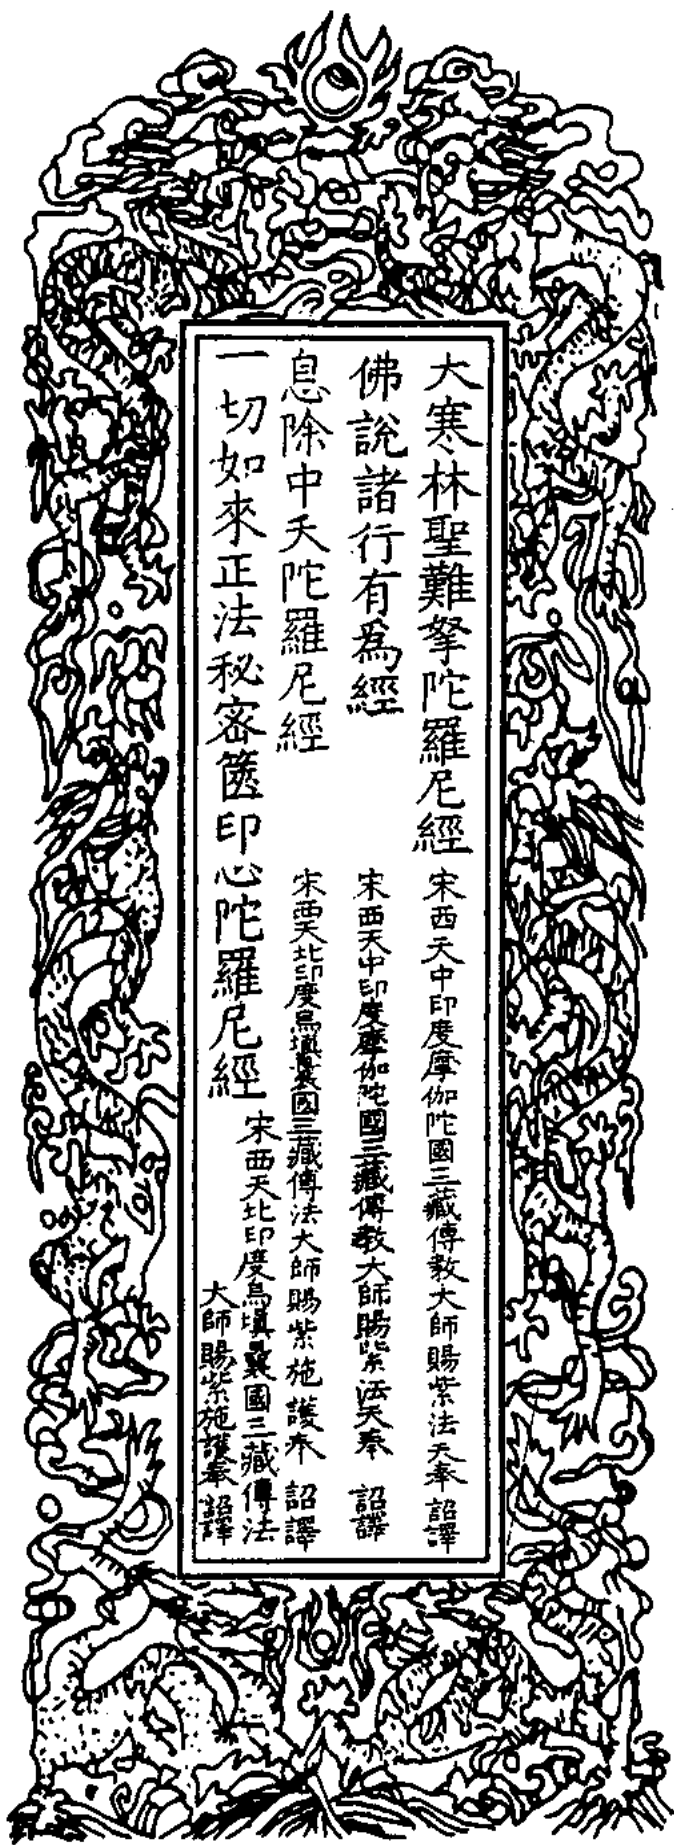 大寒林聖難拏陀羅尼經 宋西天中印度摩伽陀國三藏傳教大師賜紫法天奉 詔譯
佛說諸行有為經 宋西天中印度摩伽陀國三藏傳教大師賜紫法天奉 詔譯
息除中夭陀羅尼經 宋西天北印度烏塡曩國三藏傳法大師賜紫施護奉 詔譯
一切如來正法秘密篋印心陀羅尼經 宋西天北印度烏塡曩國三藏傳法
大師賜紫施護奉 詔譯